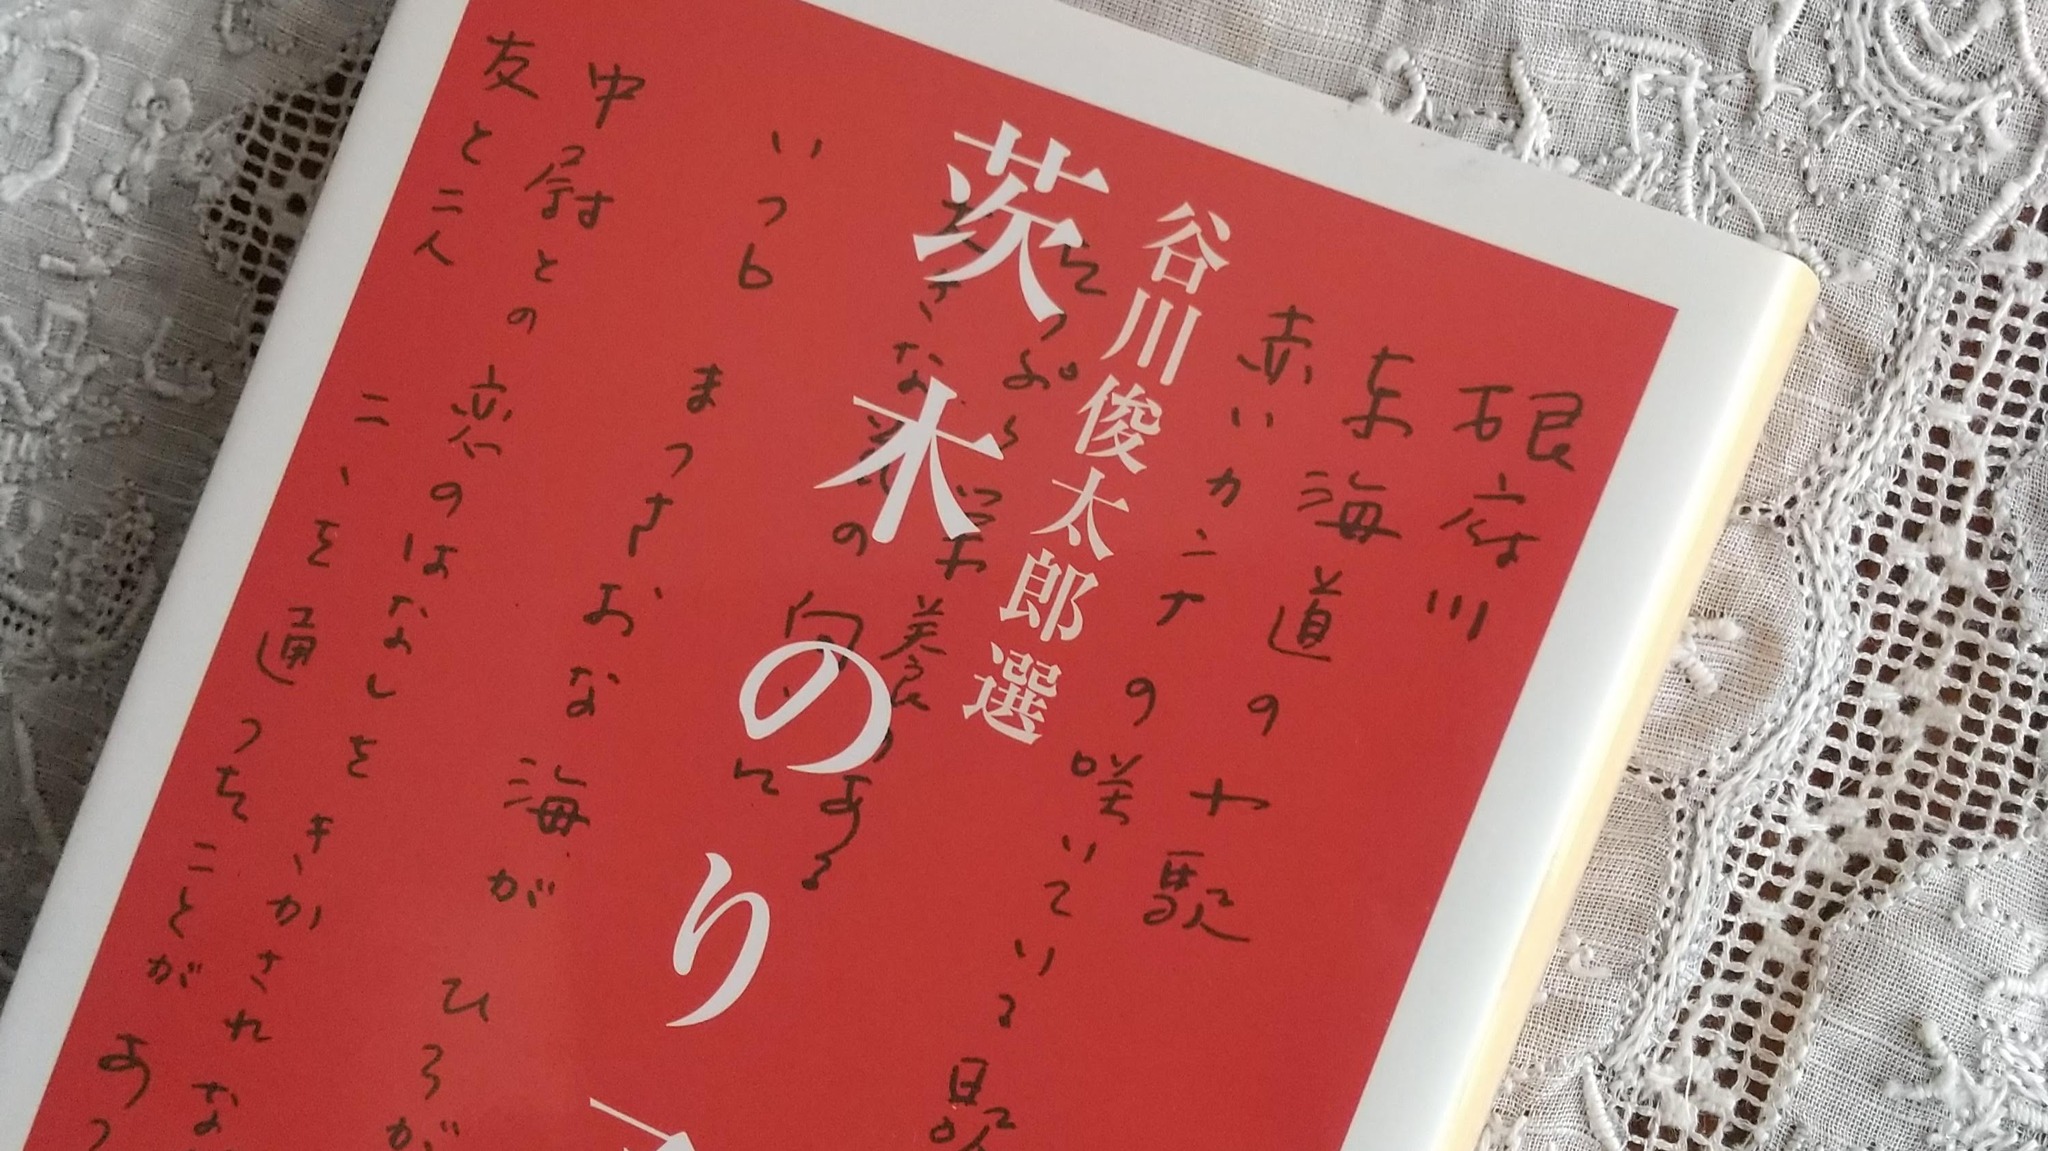 谷川俊太郎選
茨木のり
根府川
東海道の小駅
赤いカンナの咲いている駅
たっぷり栄養のある
大きな花の向うに
いつも まっさおな海が ひろが
中尉との恋のはなしを きかされな
友と二人
二、を通ったことが あっ